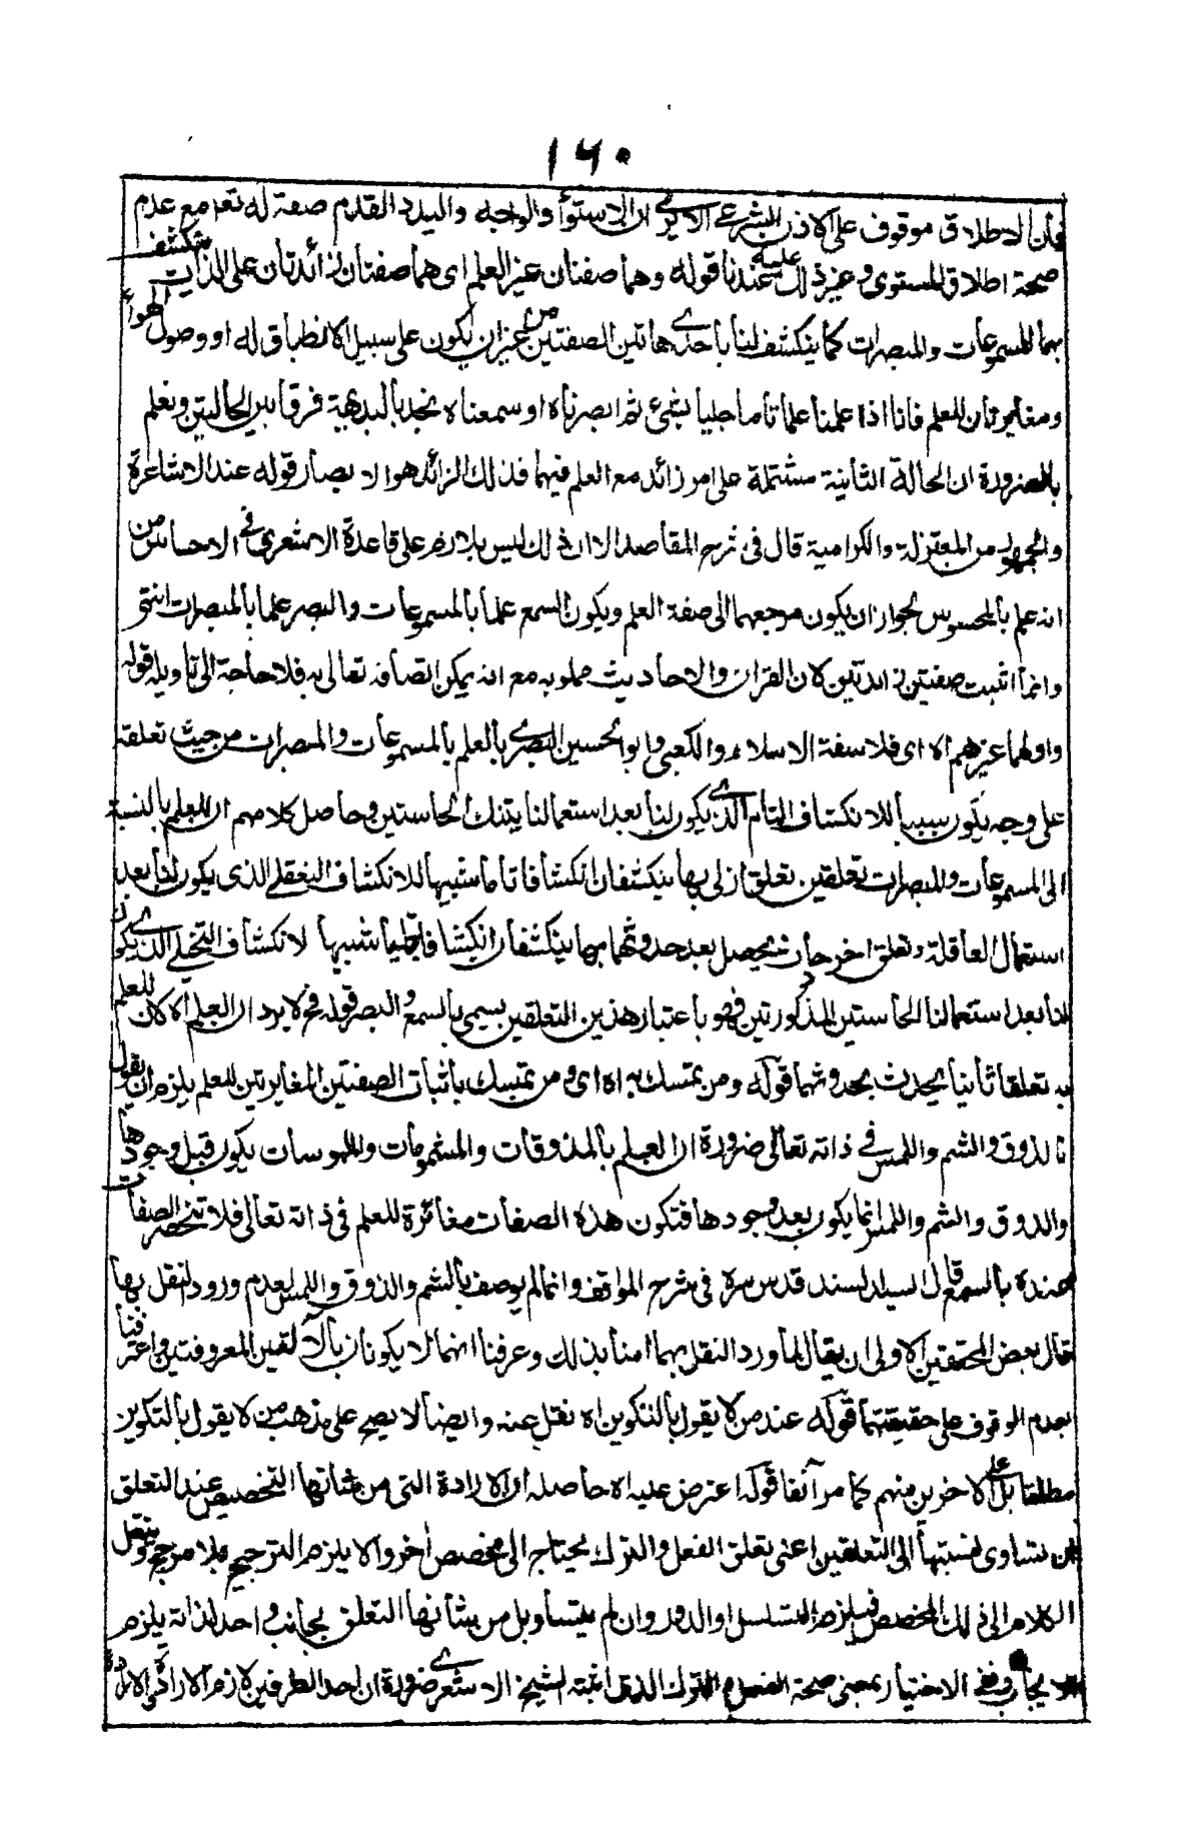 ١٦٠
فأن الاطلاق موقوف على الاذن الشرعى الا يرى ان الاستواء والوجه واليد والقدم صفة له تعم مع عدم
صحة اطلاق المستوى وغير ذلك عليه عندنا قوله وهما صفتان غير العلم اى هما صفتان زائدتان على الذات ينكشف
بهما المسموعات والمبصرات كما ينكشف لنا باحدى هاتين الصفتين من غير ان يكون على سبيل الانطباق له او وصول الهواء
ومغايرتان للعلم فانا اذا علمنا علما تاما جليا بشئ ثم ابصرناه او سمعناه نجد بالبديهة فرقا بين الحالتين ونعلم
بالضرورة ان الحالة الثانية مشتملة على امر زائد مع العلم فيهما فذلك الزائد هو الابصار قوله عند الاشاعرة
والجمهور من المعتزلة والكرامية قال فى شرح المقاصد الا ان ذلك ليس بلازم على قاعدة الاشعرى فى الاحساس من
انه علم بالمحسوس لجواز ان يكون مرجعهما الى صفة العلم ويكون السمع علما بالمسموعات والبصر علما بالمبصرات انتهى
وانما اثبت صفتين زائدتين لان القران والاحاديث مملو به مع انه يمكن اتصافه تعالى به فلا حاجة الى تاويله قوله
واولهما غيرهم اه اى فلاسفة الاسلام والكعبى وابو الحسين البصرى بالعلم بالمسموعات والمبصرات من حيث تعلقه
على وجه يكون سببا للانكشاف التام الذى يكون لنا بعد استعمالنا بتينك الحاستين وحاصل كلامهم ان للعلم بالنسبة
الى المسموعات والمبصرات تعلقين تعلق ازلى بها ينكشفان انكشافا تاما شبيها للانكشاف التعقلى الذى يكون لنا بعد
استعمال العاقلة وتعلق اخر حادث يحصل بعد حدوثهما بهما ينكشفان انكشافا جليا شبيها لانكشاف التخيلى الذى يكون
لنا بعد استعمالنا الحاستين المذكورتين فهو باعتبار هذين التعلقين يسمى بالسمع والبصر قوله فح لا يرد ان العلم اه كان للعلم
به تعلقا ثانيا يحدث بحدوثهما قوله ومن يتمسك به اه اى ومن يتمسك باثبات الصفتين المغايرتين للعلم يلزم ان يقول
بالذوق والشم واللمس فى ذاته تعالى ضرورة ان العلم بالمذوقات والمشمومات والملموسات يكون قبل وجودها
والذوق والشم واللمس انما يكون بعد وجودها فتكون هذه الصفات مغائرة للعلم فى ذاته تعالى فلا تنحصر الصفات
عنده بالسمع قال السيد السند قدس سره فى شرح المواقف وانما لم يوصف بالشم والذوق واللمس لعدم ورود النقل بها
قال بعض المحققين الاولى ان يقال لما ورد النقل بهما امنا بذلك وعرفنا انهما لا يكونان بالآلتين المعروفتين واعترفنا
بعدم الوقوف على حقيقتهما قوله عند من لا يقول بالتكوين اه نقل عنه وايضا لا يصح على مذهب من لا يقول بالتكوين
مطلقا بل على الاخرين منهم كما مر آنفا قوله اعترض عليه اه حاصله ان الارادة التى من شانها التخصيص عند التعلق
ان تساوى نسبتها الى التعلقين اعنى تعلق الفعل والترك يحتاج الى مخصص اخر والا يلزم الترجيح بلا مرجح وننقل
الكلام الى ذلك المخصص فيلزم التسلسل او الدور وان لم يتساو بل من شانها التعلق بجانب واحد لذاته يلزم
الايجاب ونفى الاختيار بمعنى صحة الفعل والترك الذى اثبته الشيخ الاشعرى ضرورة ان احد الطرفين لازم الارادة